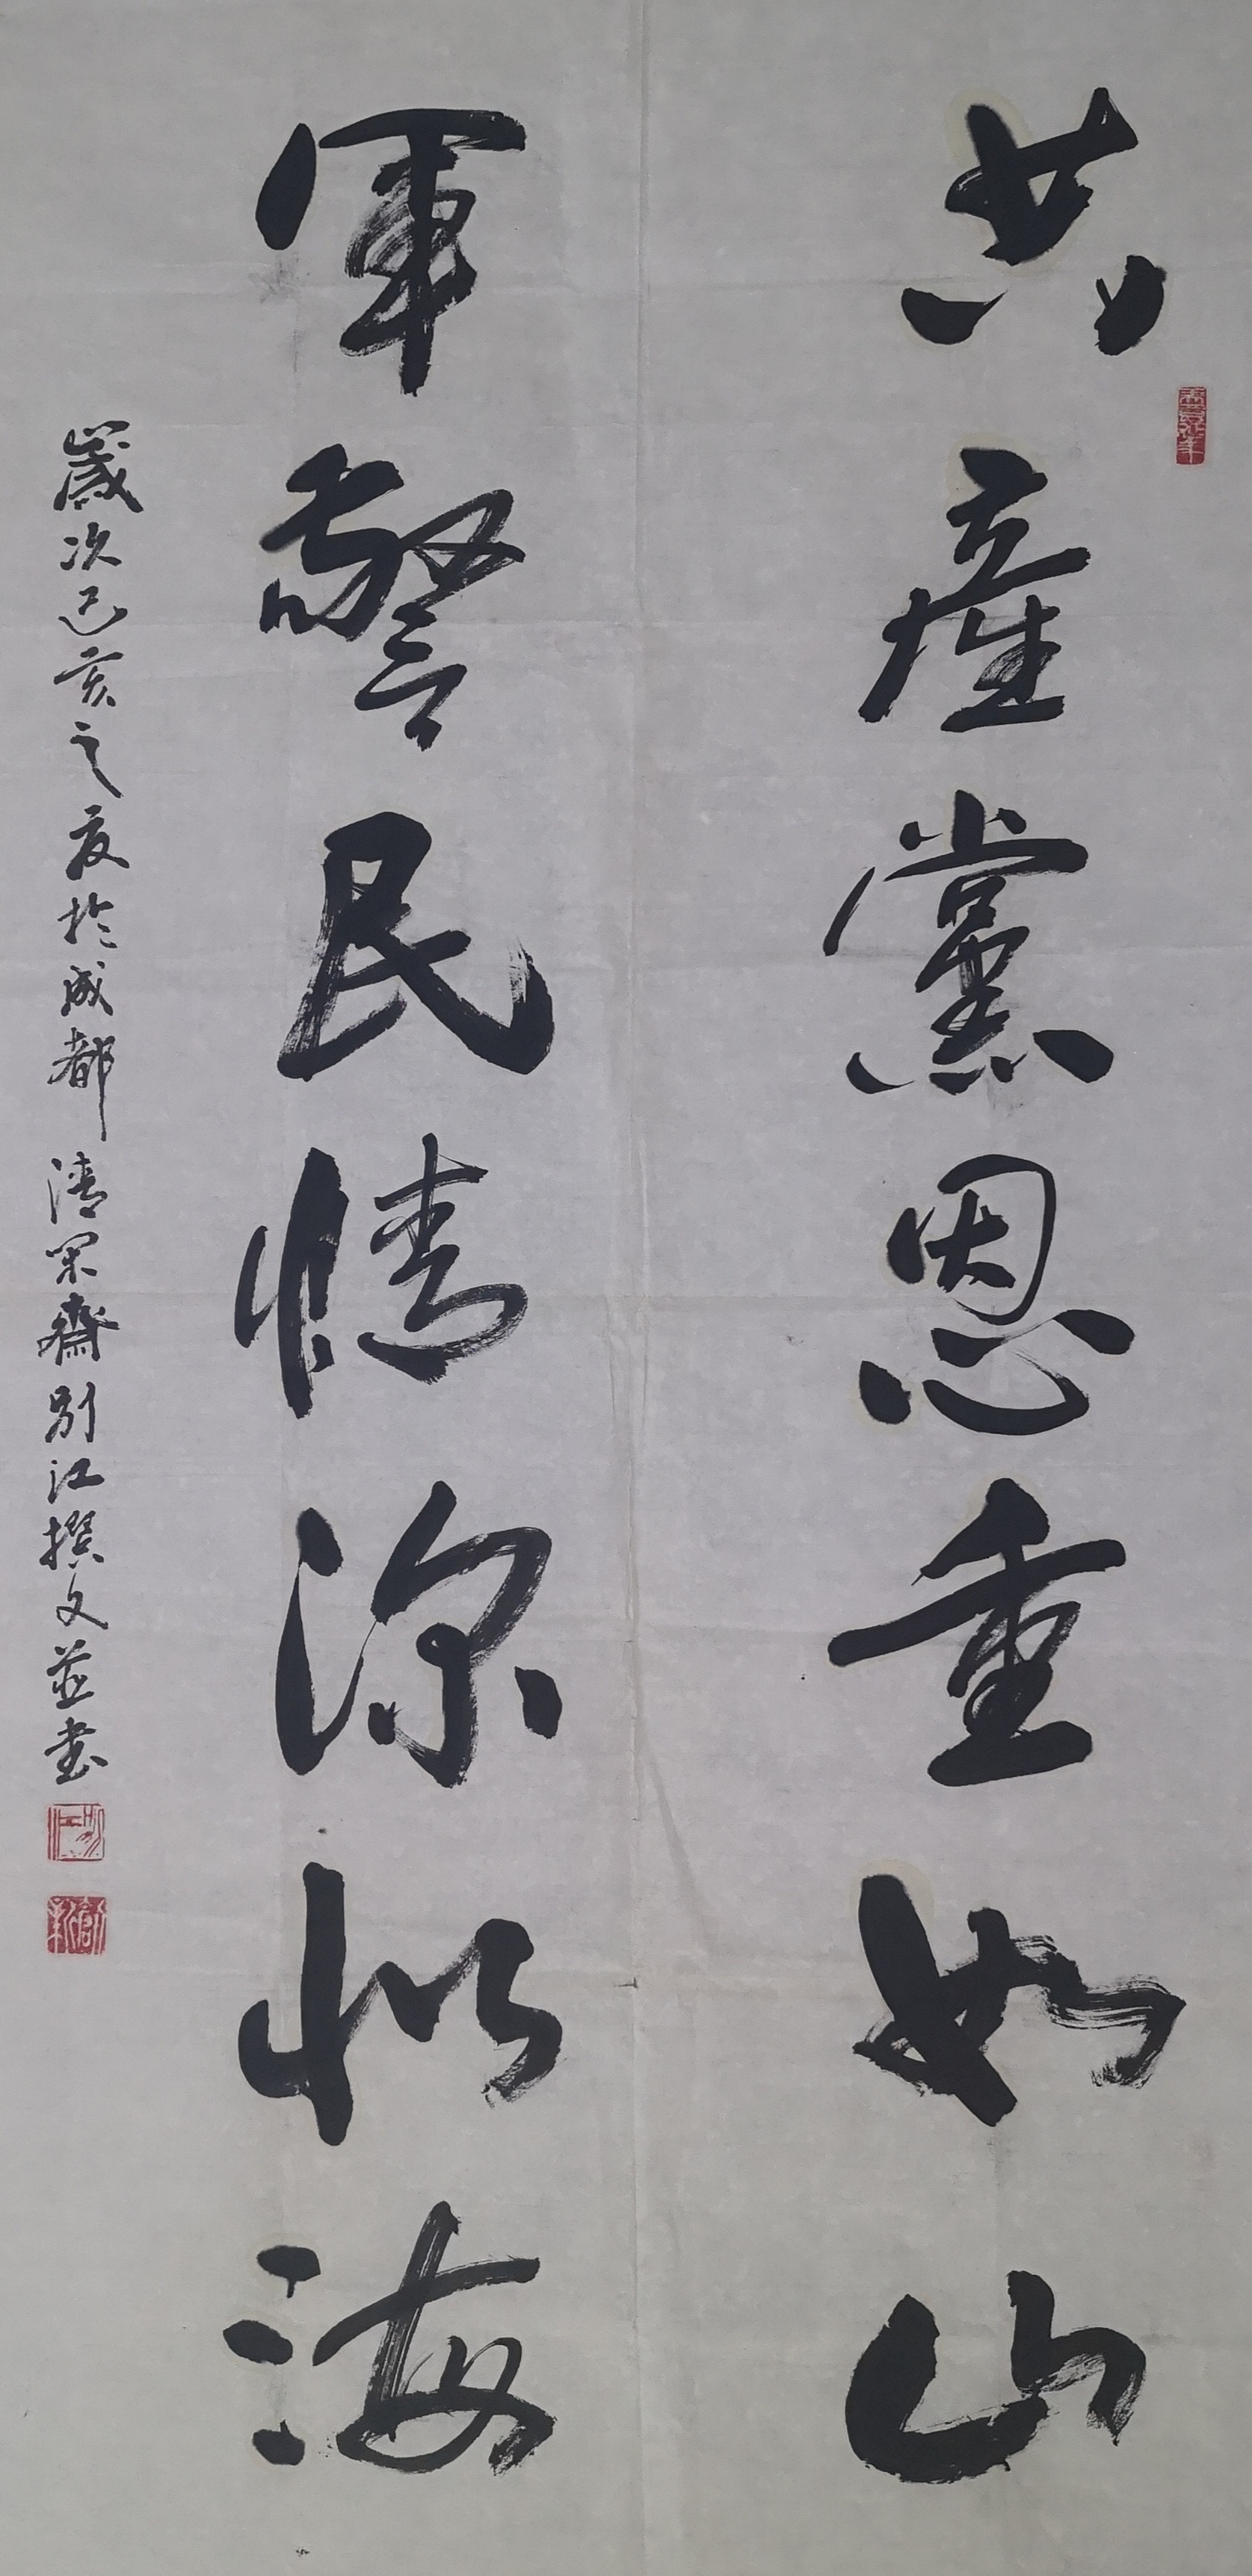 共產黨恩重如山
軍警民情深似海
歲次己亥之夏於成都清泉齋別江撰文並書